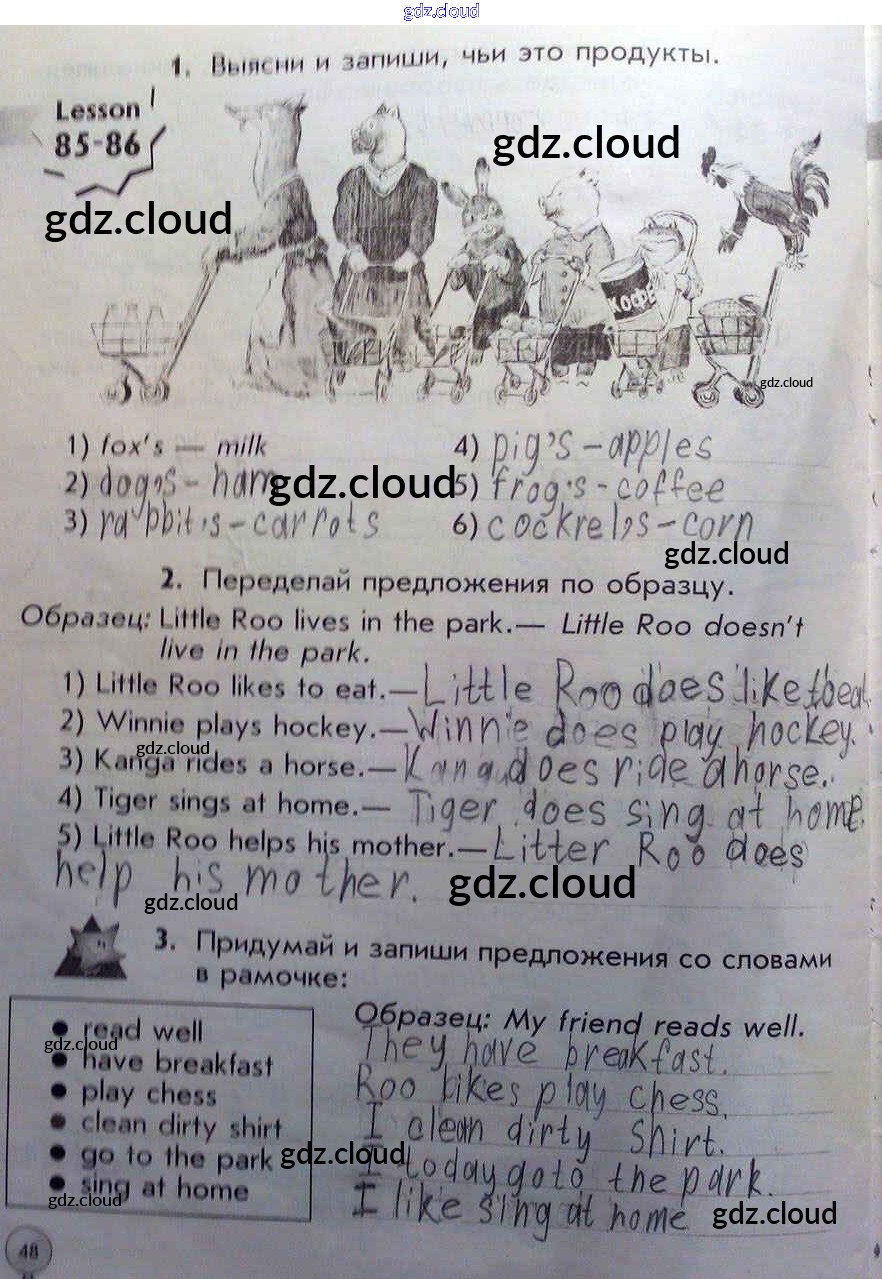 gdz.cloud
1. Выясни и запиши, чьи это продукты.
Lesson
85-86
gdz.cloud
gdz.cloud
КОФЕ
gdz.cloud
1) fox's — milk 4) pig's - apples
2) dog's - ham gdz.cloud 5) frog's - coffee
3) rabbit's - carrots 6) cockrel's - corn
gdz.cloud
2. Переделай предложения по образцу.
Образец: Little Roo lives in the park. — Little Roo doesn't
live in the park.
1) Little Roo likes to eat. — Little Roo does like to eat.
2) Winnie plays hockey. — Winnie does play hockey.
gdz.cloud
3) Kanga rides a horse. — Kana does ride a horse.
4) Tiger sings at home. — Tiger does sing at home.
5) Little Roo helps his mother. — Litter Roo does
help his mother. gdz.cloud
gdz.cloud
3. Придумай и запиши предложения со словами
в рамочке:
Образец: My friend reads well.
• read well
gdz.cloud
They have breakfast.
• have breakfast
Roo likes play chess.
• play chess
I clean dirty shirt.
• clean dirty shirt
gdz.cloud
I today go to the park.
• go to the park
• sing at home
gdz.cloud
I like sing at home gdz.cloud
48